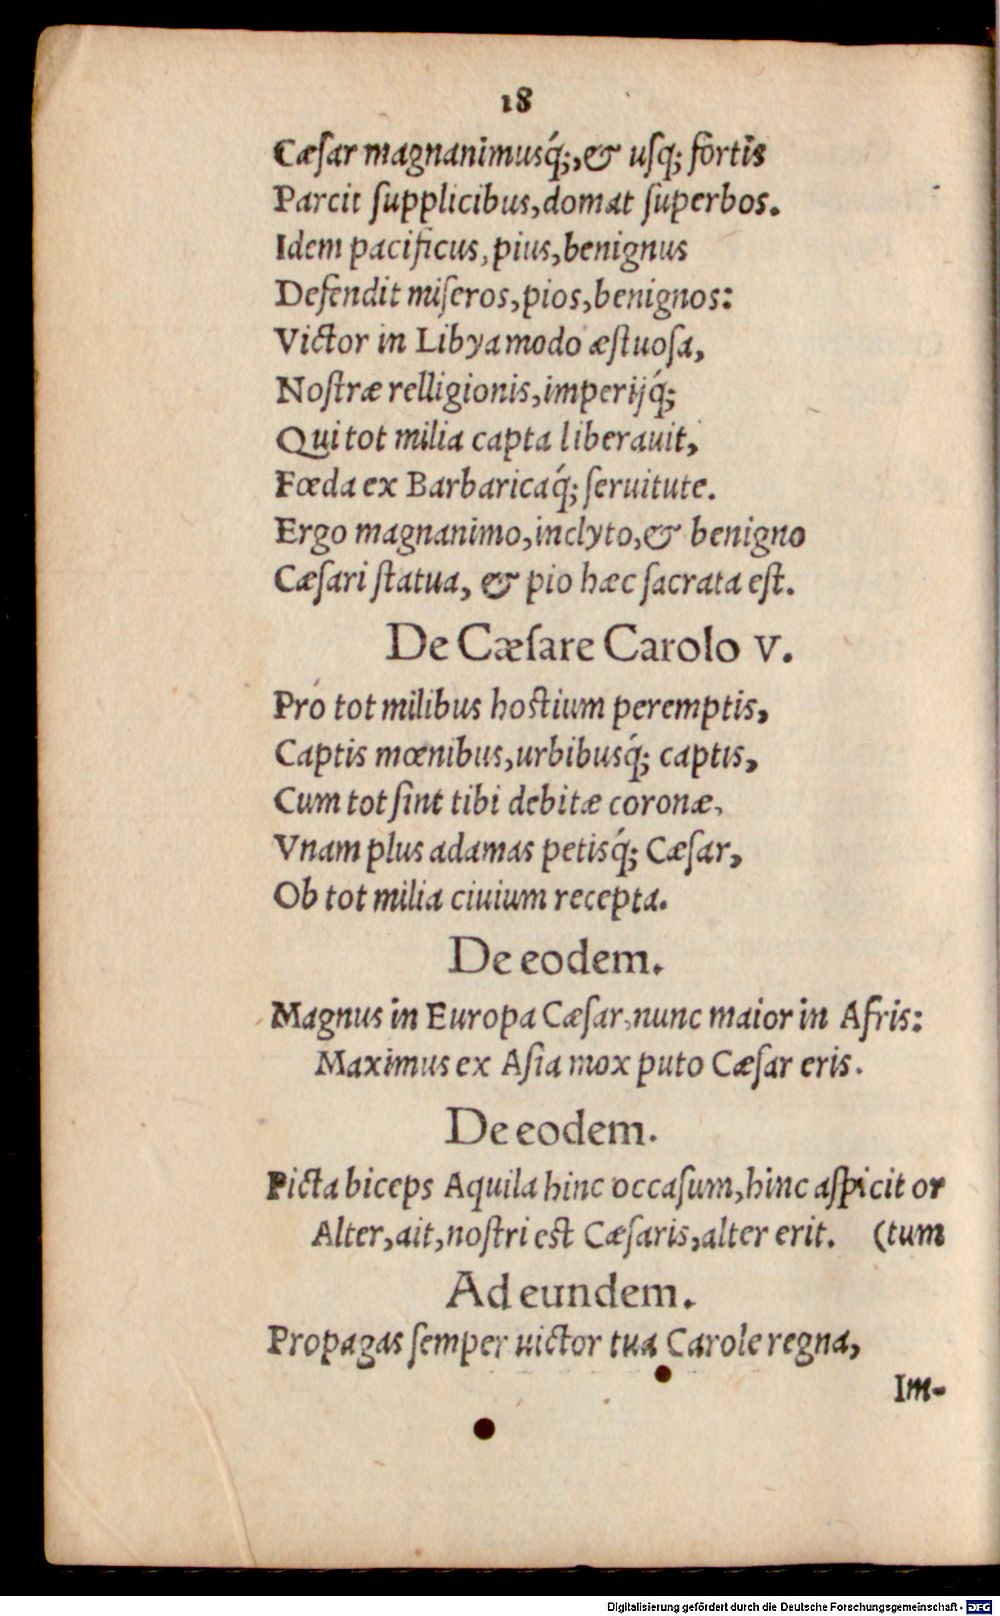 18
Cæſar magnanimusq́;,& uſq; fortis
Parcit ſupplicibus,domat ſuperbos.
Idem pacificus,pius,benignus
Defendit miſeros,pios,benignos:
Victor in Libya modo æſtuoſa,
Noſtræ relligionis,imperijq́;
Qui tot milia capta liberauit,
Fœda ex Barbaricaq́; ſeruitute.
Ergo magnanimo,inclyto,& benigno
Cæſari ſtatua, & pio hæc ſacrata eſt.
De Cæſare Carolo V.
Pro tot milibus hoſtium peremptis,
Captis mœnibus,urbibusq́; captis,
Cum tot ſint tibi debitæ coronæ,
Vnam plus adamas petisq́; Cæſar,
Ob tot milia ciuium recepta.
De eodem.
Magnus in Europa Cæſar,nunc maior in Afris:
Maximus ex Aſia mox puto Cæſar eris.
De eodem.
Picta biceps Aquila hinc occaſum,hinc aſpicit or
Alter,ait,noſtri eſt Cæſaris,alter erit. (tum
Ad eundem.
Propagas ſemper uictor tua Carole regna,
Im-
Digitalisierung gefördert durch die Deutsche Forschungsgemeinschaft - DFG